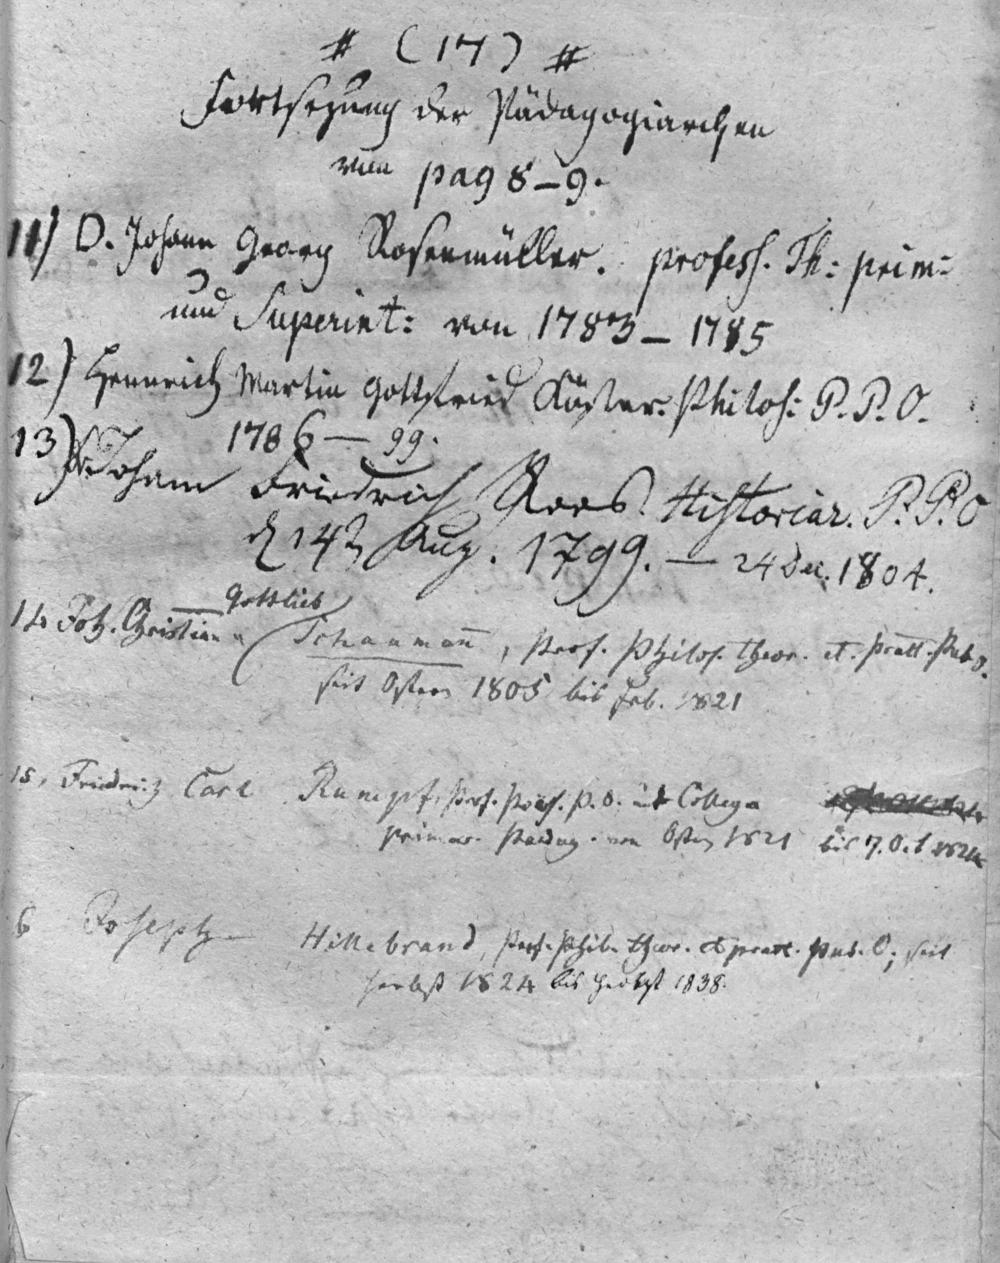 # (17) #
Fortsezung der Pädagogiarchen
von pag 8-9.
11) D. Johann Georg Rosenmüller. profess. Th: prim:
und Superint: von 1783 – 1785
12) Hennrich Martin Gottfried Köster. Philos: P. P. O.
1786 – 99.
13) Johann Friedrich Roos. Historiar. P. P. O
d 14t Aug. 1799. – 24 Dec. 1804.
Gottlieb
14, Joh. Christian Schaumann, Prof. Philos. theor. et. pract. Pub. O.
seit Ostern 1805 bis Feb. 1821
15, Friedrich Carl Rumpf, Prof. P. O. Collega
primar. Paedag. von Ostern 1821 bis 7. Oct 1824
6 Joseph Hillebrand, Prof. Phil. theor. et pract. pub. O; seit
Herbst 1824 bis Herbst 1838.